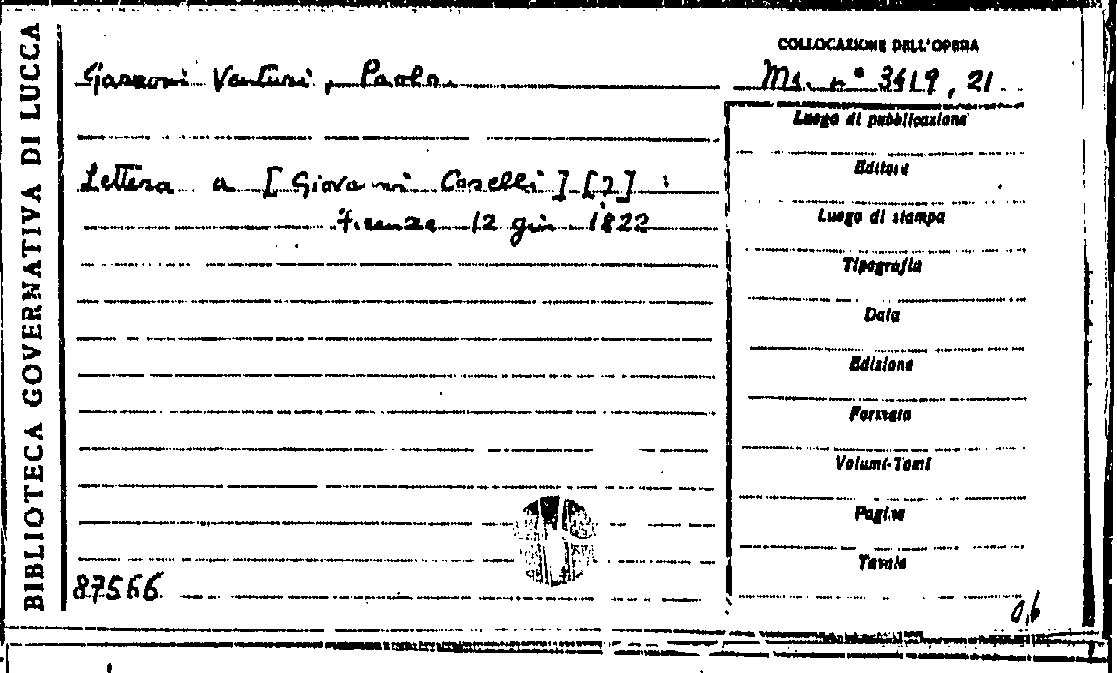 BIBLIOTECA GOVERNATIVA DI LUCCA
COLLOCAZIONE DELL'OPERA
Garzoni Venturi, Paolo.
Ms. n° 3419, 21
Luogo di pubblicazione
Editore
Lettera a [Giovanni Caselli] [?] :
Firenze 12 giu 1822
Luogo di stampa
Tipografia
Data
Edizione
Formato
Volumi-Tomi
Pagine
Tavole
87566